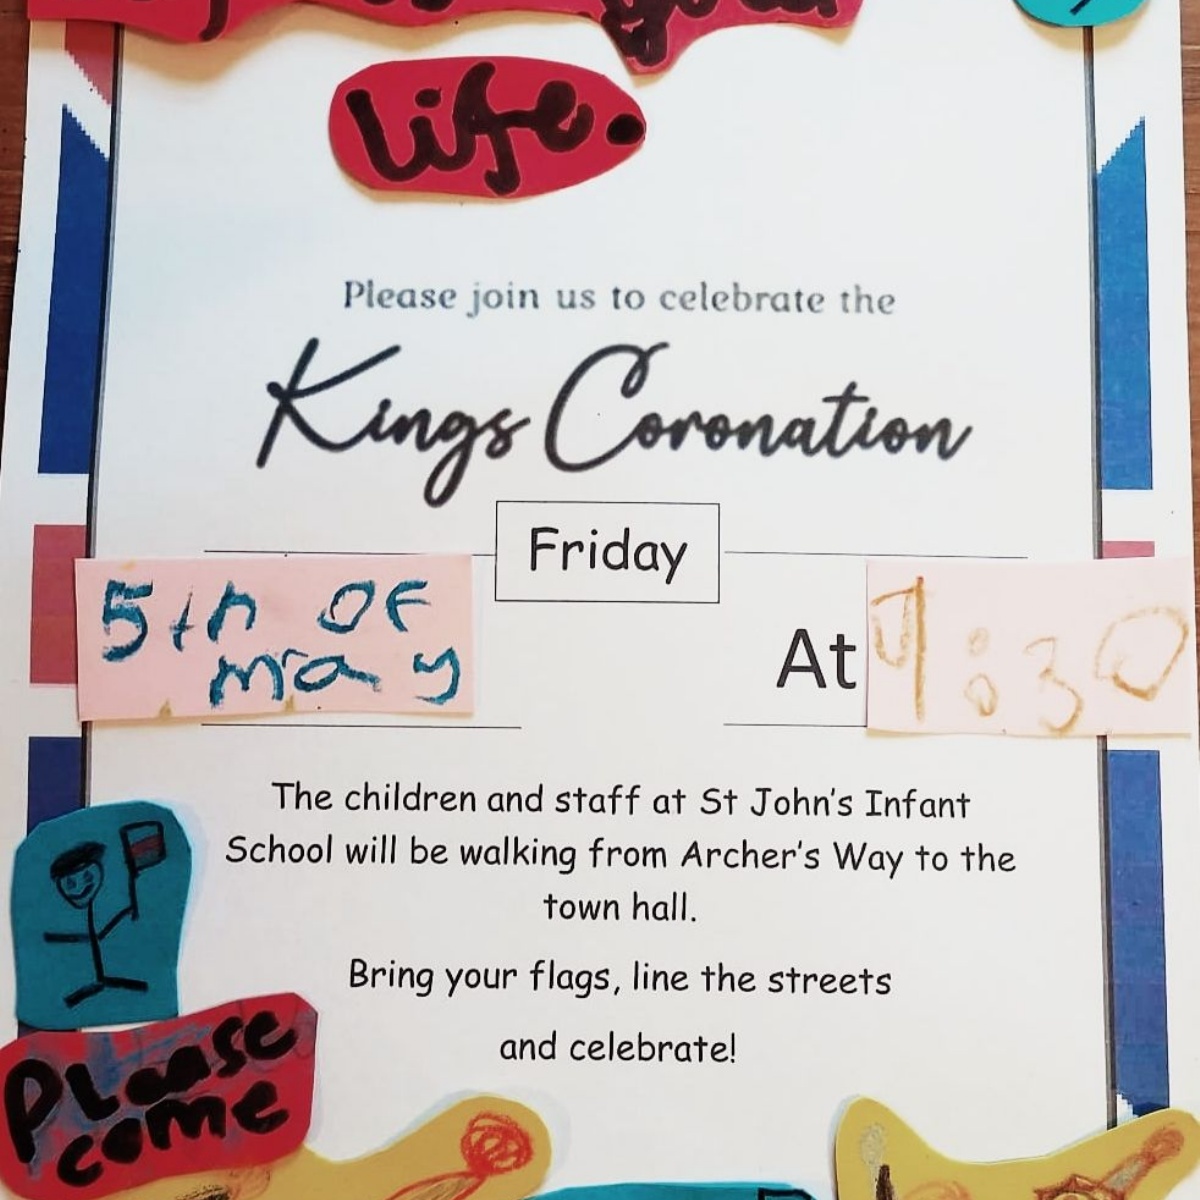 Life.
Please join us to celebrate the
Kings Coronation
Friday
5th of
may
At
:30
The children and staff at St John's Infant
School will be walking from Archer's Way to the
town hall.
Bring your flags, line the streets
and celebrate!
Please
come